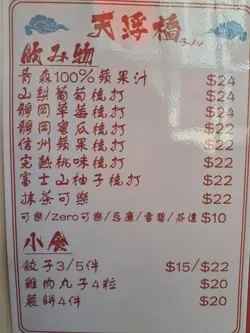 天浮橋
ラーメン
飲み物
青森100%蘋果汁 $24
山梨葡萄梳打 $24
靜岡草莓梳打 $24
靜岡蜜瓜梳打 $22
信州蘋果梳打 $22
完熟桃味梳打 $22
富士山柚子梳打 $22
抹茶可樂 $22
可樂/Zero可樂/忌廉/雪碧/芬達 $10
小食
餃子3/5件 $15/$22
雞肉丸子4粒 $20
蕨餅4件 $20